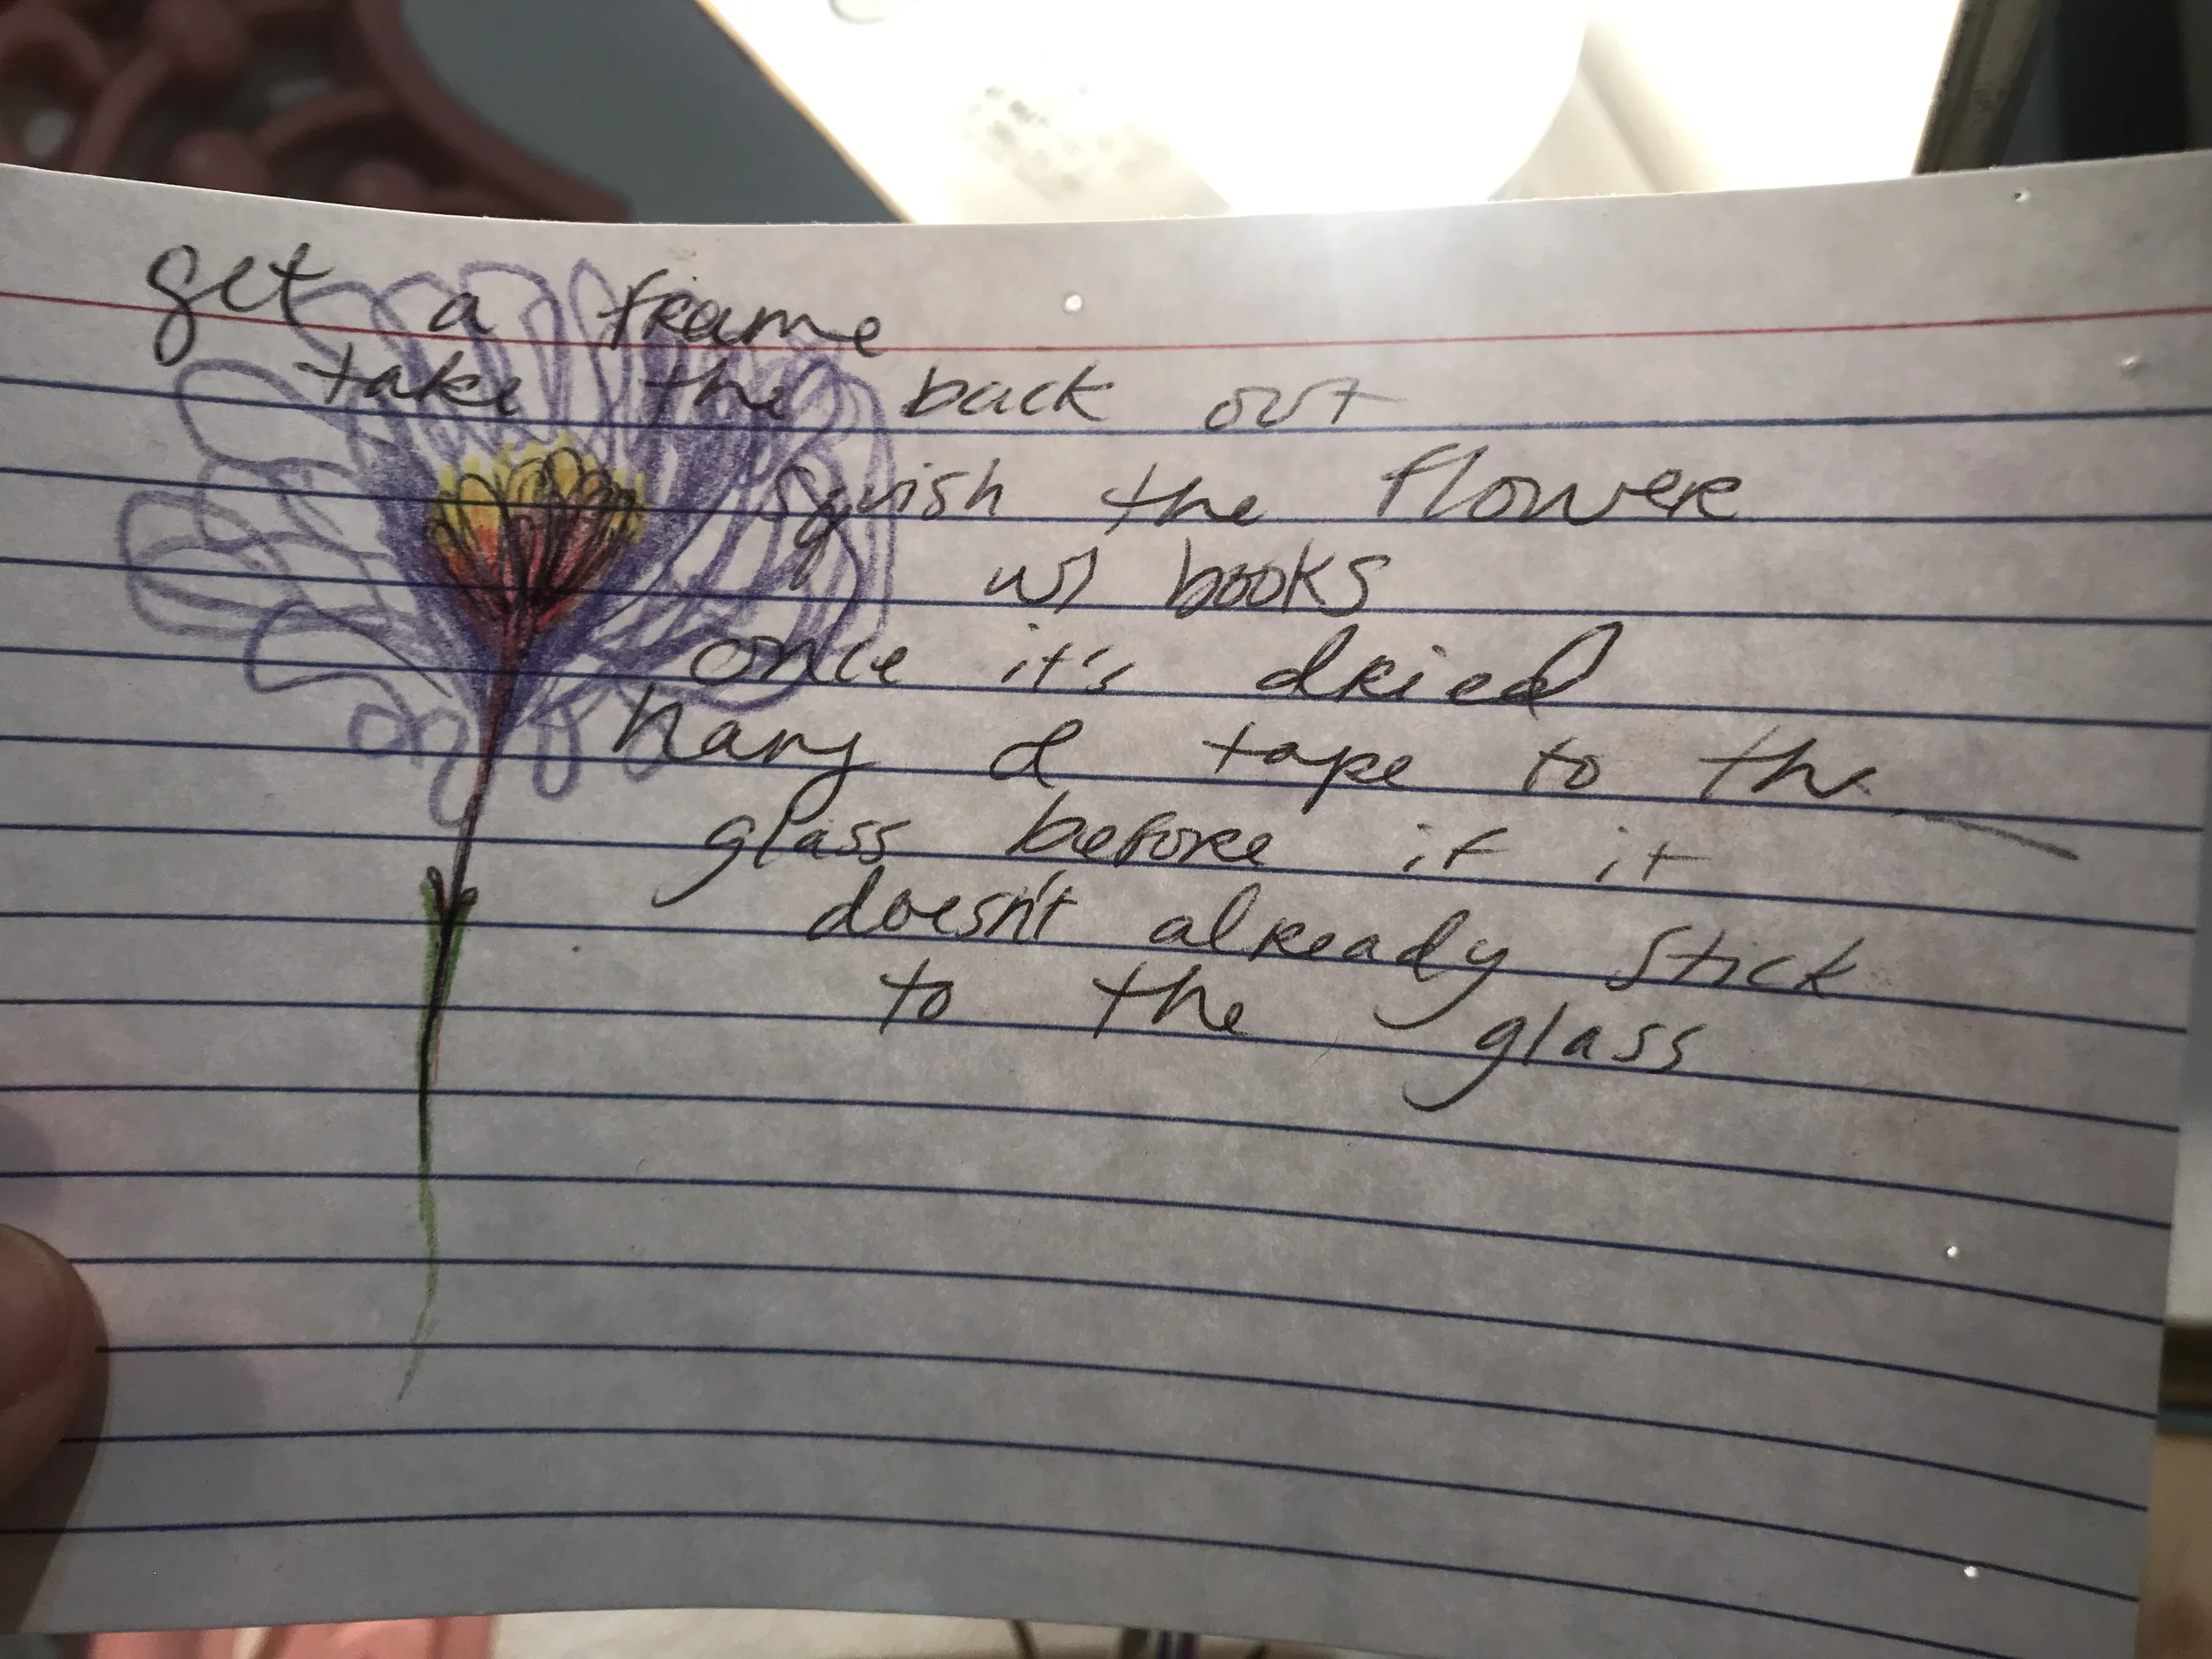 get a frame
take the back out
squish the flower
w/ books
once it's dried
hang & tape to the
glass before if it
doesn't already stick
to the glass